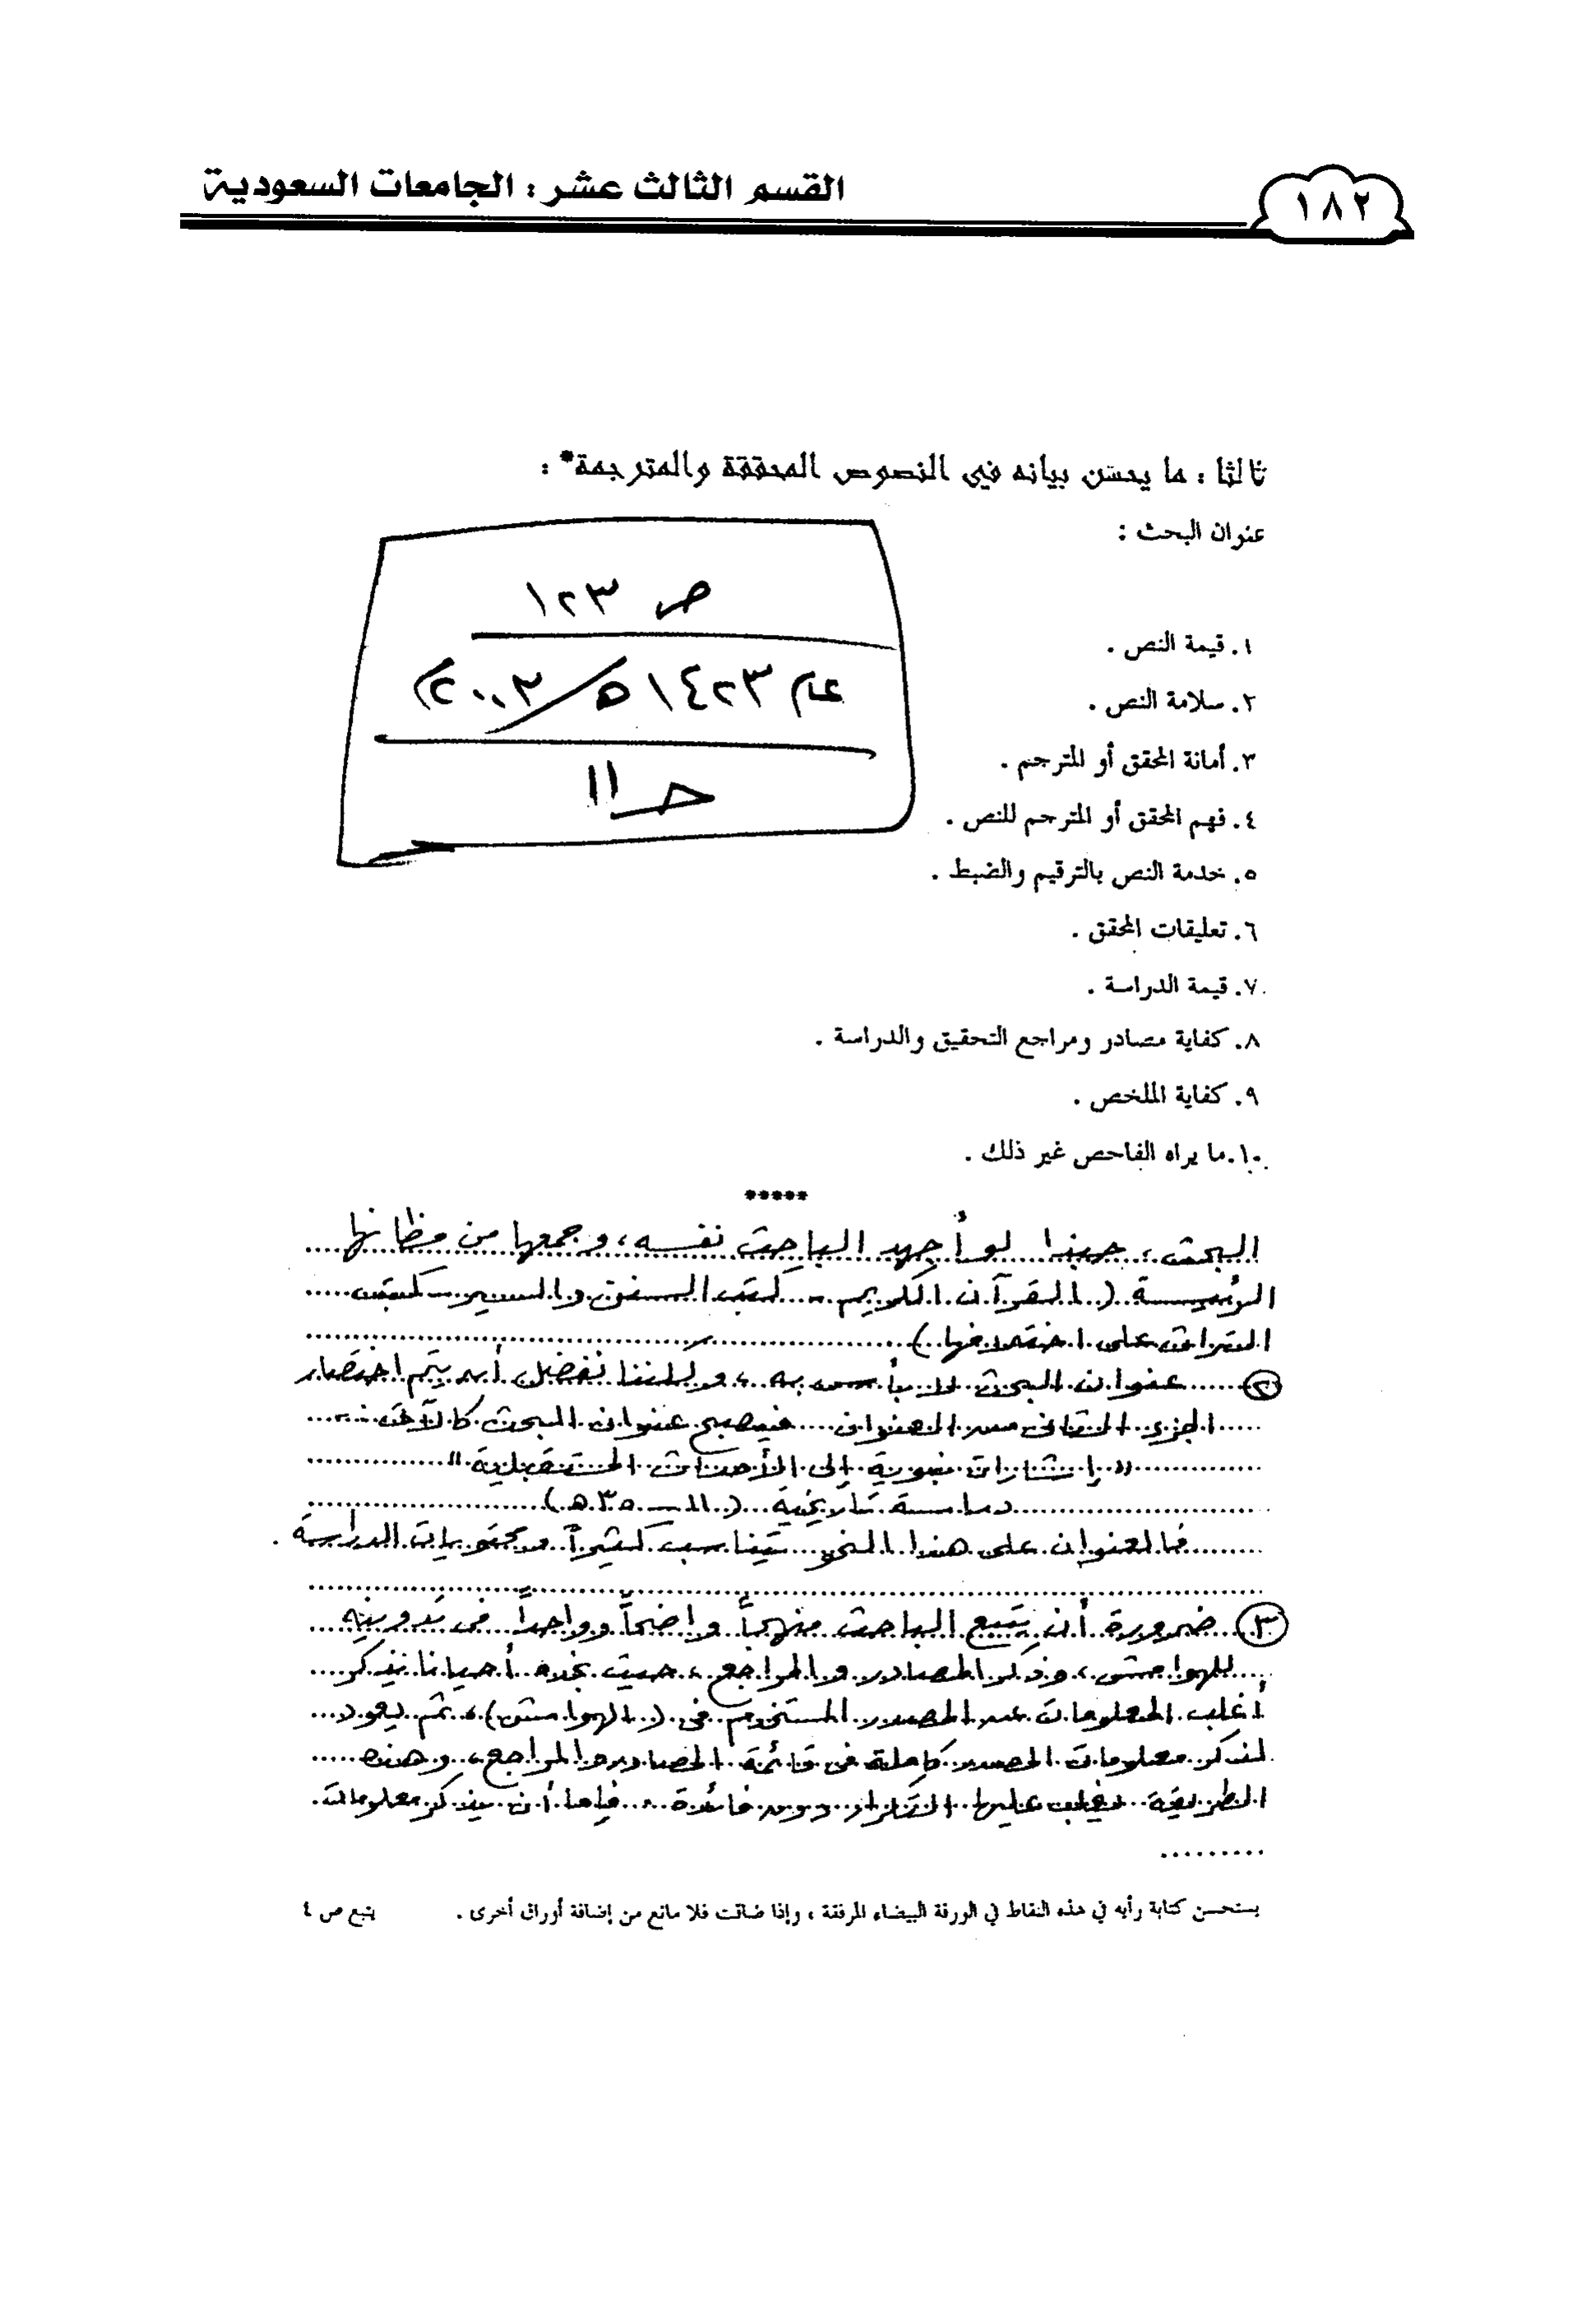 ١٨٢
القسم الثالث عشر : الجامعات السعودية
ثالثا : ما يحسن بيانه في النصوص المحققة والمترجمة* :
عنوان البحث :
ص ١٢٣
عام ١٤٢٣هـ/٢٠٠٢م
حـ ١١
١. قيمة النص .
٢. سلامة النص .
٣. أمانة المحقق أو المترجم .
٤. فهم المحقق أو المترجم للنص .
٥. خدمة النص بالترقيم والضبط .
٦. تعليقات المحقق .
٧. قيمة الدراسة .
٨. كفاية مصادر ومراجع التحقيق والدراسة .
٩. كفاية الملخص .
١٠. ما يراه الفاحص غير ذلك .
*****
البحث، حبذا لو أجهد الباحث نفسه، وجمعها من مظانها
الرئيسة (القرآن الكريم - كتب السنن والسير - كتب
التراث على اختلافها)
٢ عنوان البحث لا بأس به، ولكننا نفضل أن يتم اختصار
الجزء الثاني من العنوان فيصبح عنوان البحث كالآتي :
"إشارات نبوية إلى الأحداث المستقبلية"
دراسة تاريخية (١١ - ٣٥هـ)
فالعنوان على هذا النحو يتناسب كثيراً ومحتويات الدراسة .
٣ ضرورة أن يتبع الباحث منهجاً واضحاً وواحداً في تدوينه
للهوامش، وذكر المصادر والمراجع، حيث نجده أحيانا يذكر
أغلب المعلومات عن المصدر المستخدم في (الهوامش)، ثم يعود
لذكر معلومات المصدر كاملة في قائمة المصادر والمراجع، وهذه
الطريقة يغلب عليها التكرار دون فائدة، فإما أن يذكر معلومات
يستحسن كتابة رأيه في هذه النقاط في الورقة البيضاء المرفقة ، وإذا ضاقت فلا مانع من إضافة أوراق أخرى . يتبع ص ٤